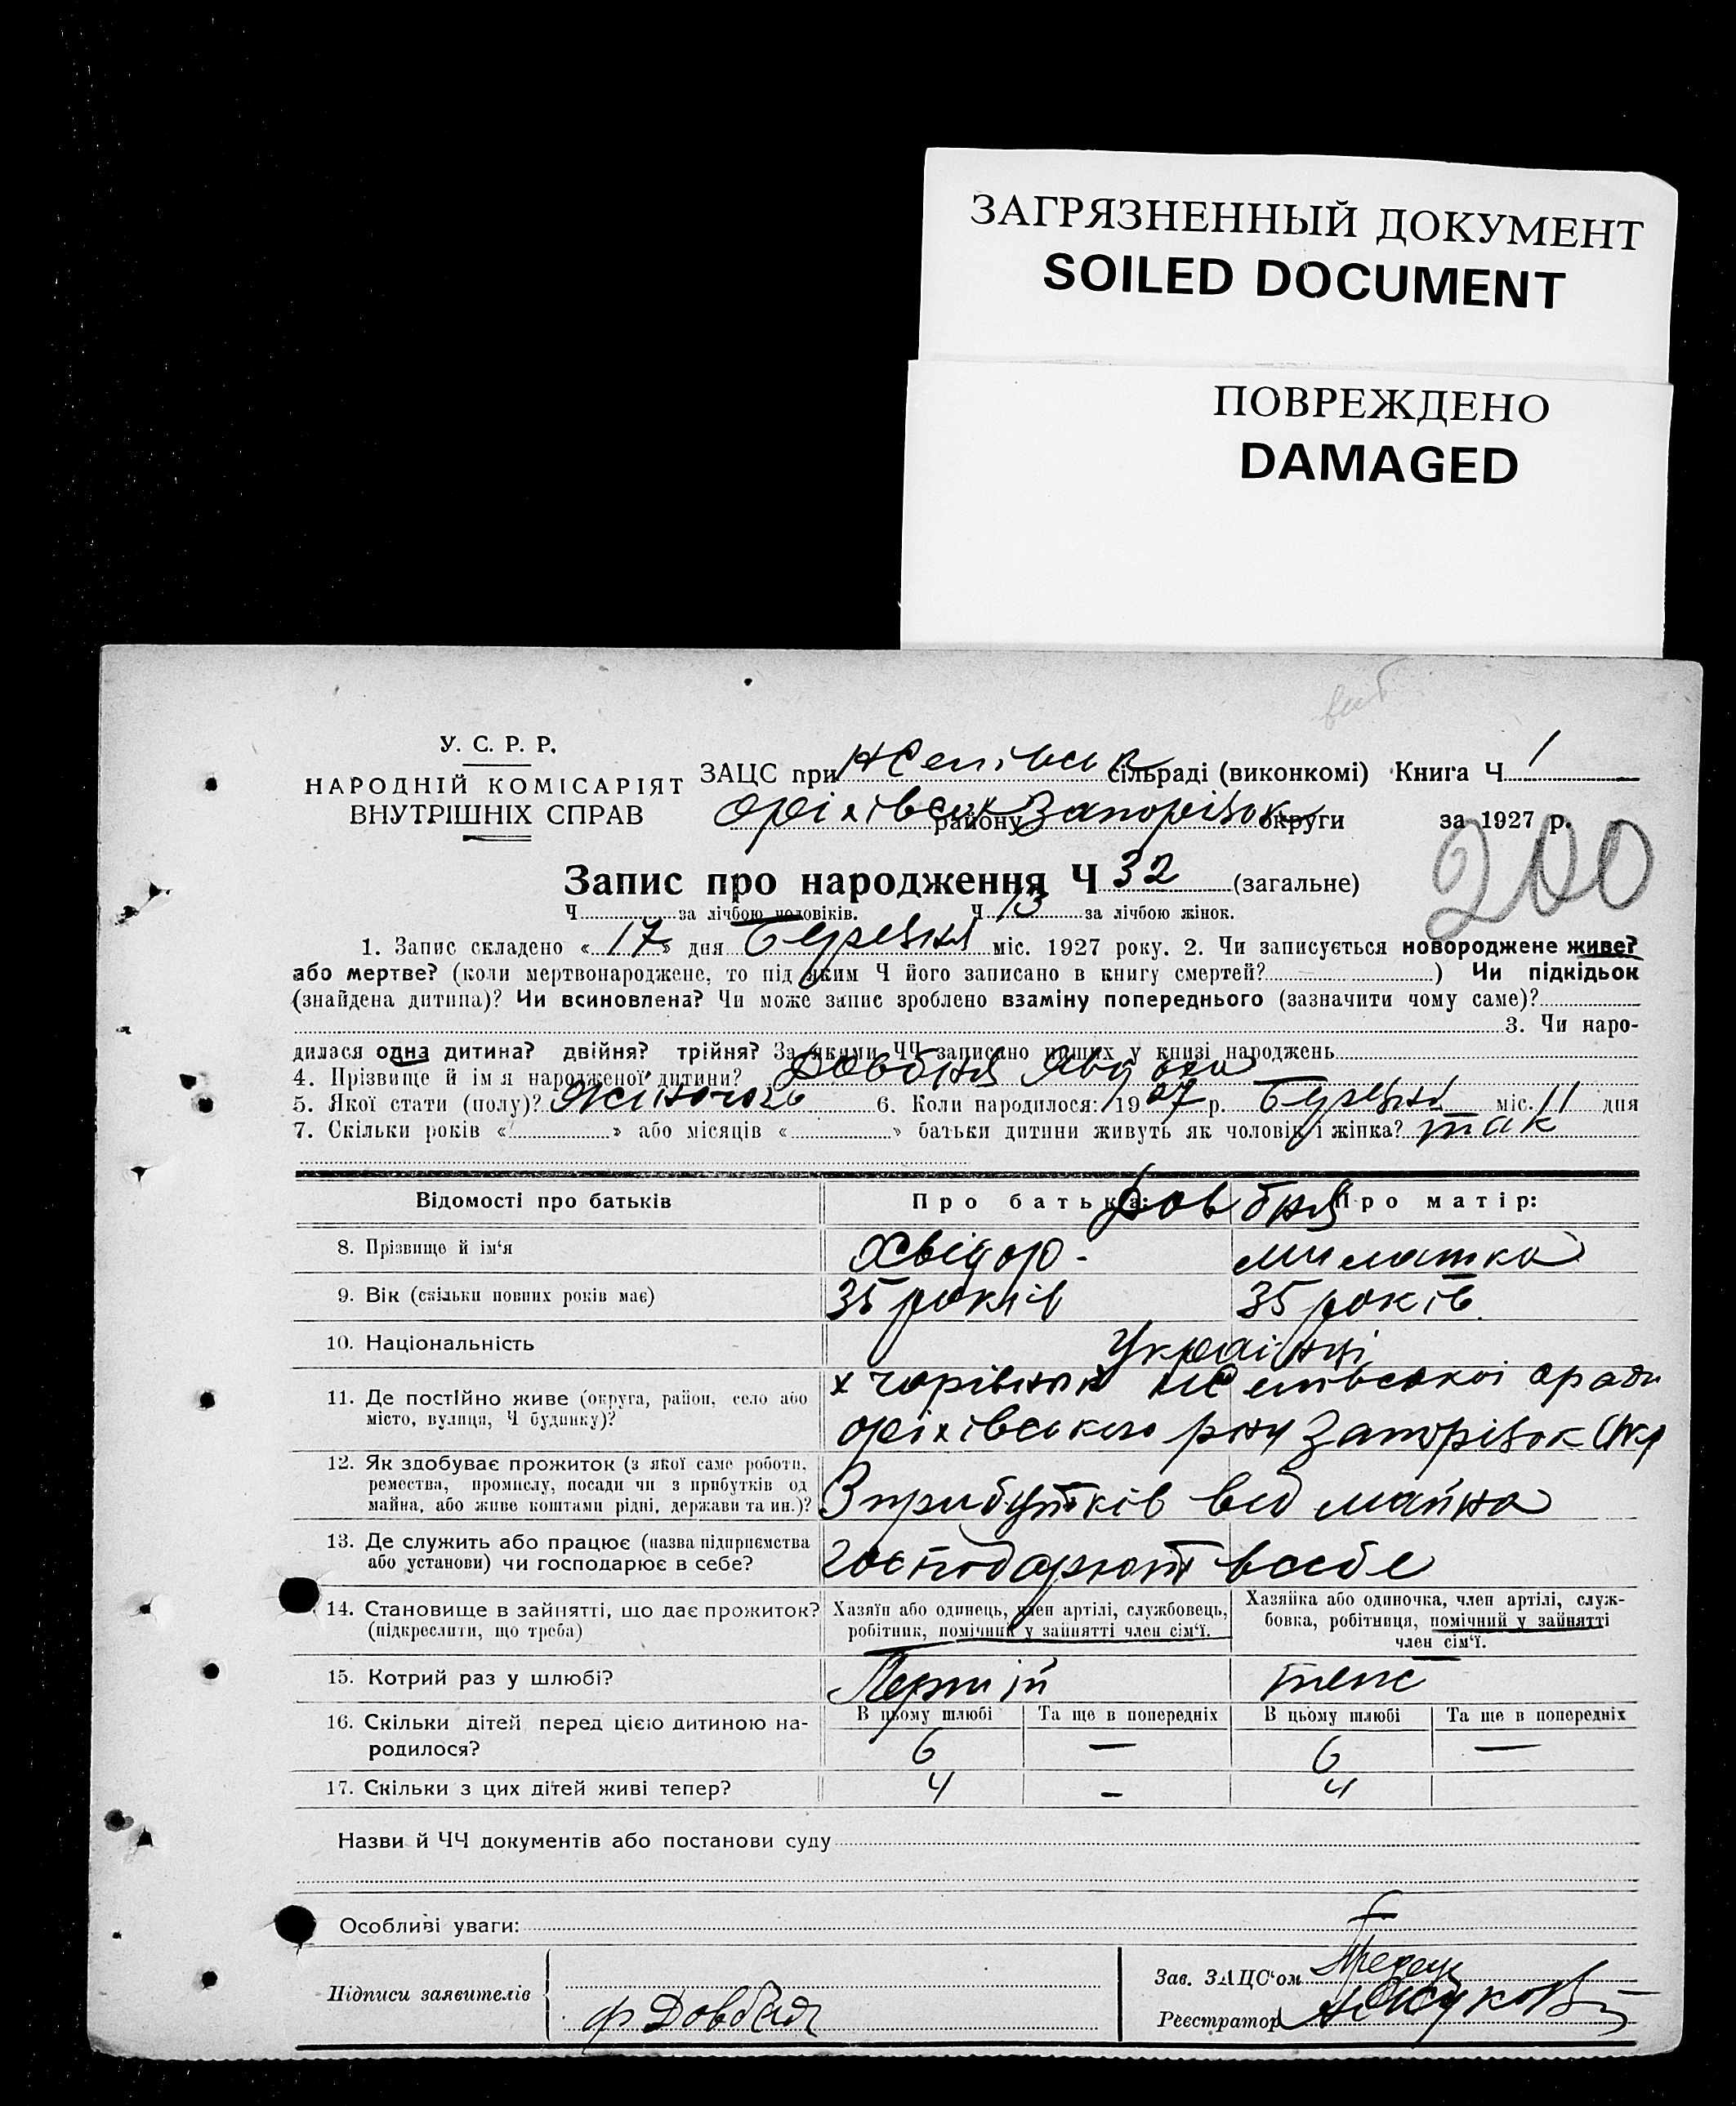 ЗАГРЯЗНЕННЫЙ ДОКУМЕНТ
SOILED DOCUMENT
ПОВРЕЖДЕНО
DAMAGED
У. С. Р. Р.
НАРОДНІЙ КОМІСАРІЯТ
ВНУТРІШНІХ СПРАВ
ЗАЦС при сільраді (виконкомі) Книга Ч. 1
Оріхівськ району Запорізьк округи за 1927 р.
200
Запис про народження Ч 32 (загальне)
Ч. за лічбою чоловіків. Ч. 13 за лічбою жінок.
1. Запис складено « 17 » дня Березня міс. 1927 року. 2. Чи записується новороджене живе?
або мертве? (коли мертвонароджене, то під яким Ч його записано в книгу смертей? ) Чи підкідьок
(знайдена дитина)? Чи всиновлена? Чи може запис зроблено взаміну попереднього (зазначити чому саме)?
3. Чи наро-
дилася одна дитина? двійня? трійня? За якими ЧЧ записано инших у книзі народжень
4. Прізвище й ім'я народженої дитини? Довбня Явдоха
5. Якої стати (полу)? Жіночого 6. Коли народилося: 1927 р. Березня міс. 11 дня
7. Скільки років « » або місяців « » батьки дитини живуть як чоловік і жінка? так
Відомості про батьків
Про батька: Довбня Про матір:
8. Прізвище й ім'я Хвідор -
9. Вік (скільки повних років має) 35 років 35 років
10. Національність Українці
11. Де постійно живе (округа, район, село або
місто, вулиця, Ч будинку)?
Оріхівського р-ну Запорізьк Окр
12. Як здобуває прожиток (з якої саме роботи,
ремества, промислу, посади чи з прибутків од
майна, або живе коштами рідні, держави та ин.)? З прибутків від майна
13. Де служить або працює (назва підприємства
або установи) чи господарює в себе? господарюют всебе
14. Становище в зайнятті, що дає прожиток?
(підкреслити, що треба)
Хазяїн або одинець, член артілі, службовець,
робітник, помічний у зайнятті член сім'ї.
Хазяйка або одиночка, член артілі, служ-
бовка, робітниця, помічний у зайнятті
член сім'ї.
15. Котрий раз у шлюбі? Перший теж
16. Скільки дітей перед цією дитиною на-
родилося?
В цьому шлюбі Та ще в попередніх В цьому шлюбі Та ще в попередніх
6 — 6 —
17. Скільки з цих дітей живі тепер? 4 - 4
Назви й ЧЧ документів або постанови суду
Особливі уваги:
Підписи заявителів
ф Довбня
Зав. ЗАЦС'ом
Реєстратор